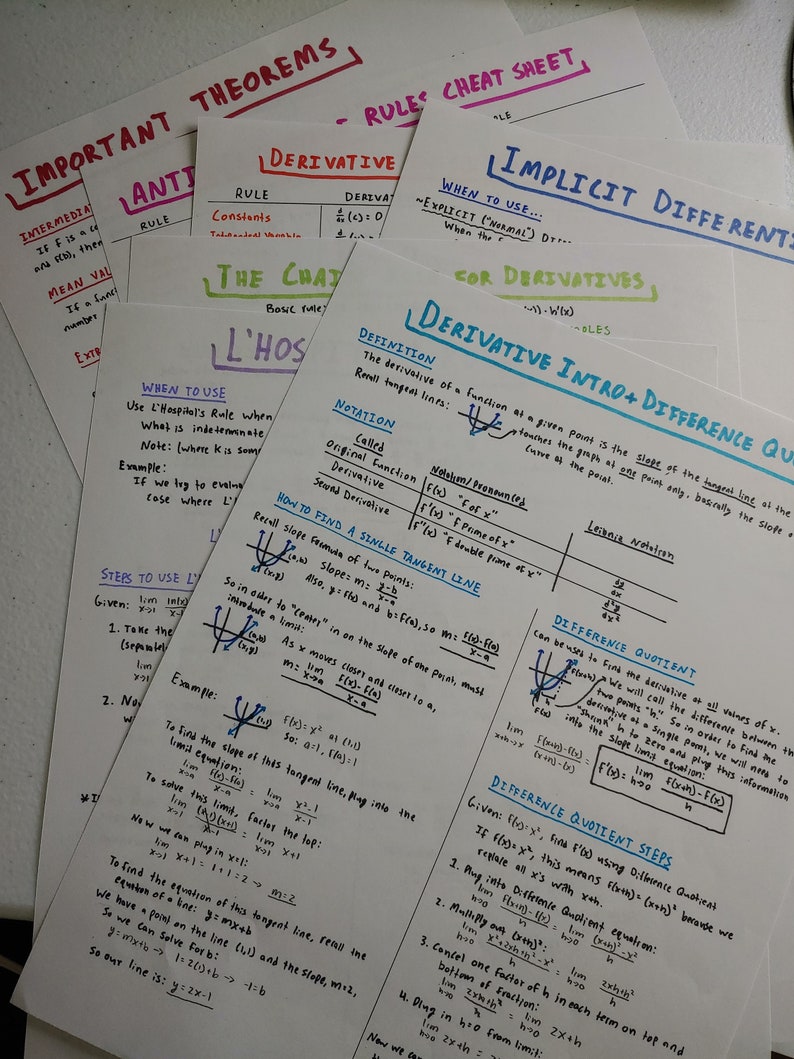 IMPORTANT THEOREMS
INTERMEDIA
If F is a co
and f(b), then
MEAN VAL
If a functi
number
EXTR
ANTI
E RULES CHEAT SHEET
RULE
DERIVATIVE
RULE
DERIVAT
Constants
d/dx (c) = 0
IMPLICIT DIFFERENTI
WHEN TO USE...
~EXPLICIT ("NORMAL") DI
When the f
THE CHAI
FOR DERIVATIVES
Basic rule:
)) · h'(x)
L'HOS
WHEN TO USE
Use L'Hospital's Rule when
What is indeterminate
Note: (where K is som
Example:
If we try to evalua
case where L'
STEPS TO USE L'
Given: lim x→1 ln(x)
1. Take the
(separatel
lim x→1
2. Now
DERIVATIVE INTRO + DIFFERENCE QU
DEFINITION
The derivative of a function at a given point is the slope of the tangent line at the
Recall tangent lines:
touches the graph at one point only, basically the slope o
curve at the point.
NOTATION
Called
Notation/pronounced
Leibniz Notation
Original Function
f(x) "f of x"
Derivative
f'(x) "f prime of x"
dy/dx
Second Derivative
f''(x) "f double prime of x"
d²y/dx²
HOW TO FIND A SINGLE TANGENT LINE
Recall slope formula of two points:
(a,b)
(x,y)
Slope = m = y-b/x-a
Also, y = f(x) and b = f(a), so m = f(x)-f(a)/x-a
So in order to "center" in on the slope of one point, must
introduce a limit:
(a,b)
(x,y)
As x moves closer and closer to a,
m = lim x→a f(x)-f(a)/x-a
Example:
(1,1)
f(x) = x² at (1,1)
so: a=1, f(a)=1
To find the slope of this tangent line, plug into the
limit equation:
lim x→a f(x)-f(a)/x-a = lim x→a x²-1/x-1
To solve this limit, factor the top:
lim x→1 (x-1)(x+1)/x-1 = lim x→1 x+1
Now we can plug in x=1:
lim x→1 x+1 = 1+1 = 2 → m=2
To find the equation of this tangent line, recall the
equation of a line: y=mx+b
We have a point on the line (1,1) and the slope, m=2,
So we can solve for b:
y=mx+b → 1=2(1)+b → -1=b
So our line is: y=2x-1
DIFFERENCE QUOTIENT
Can be used to find the derivative at all values of x.
f(x+h)
h
f(x)
We will call the difference between th
two points "h." So in order to find the
derivative at a single point, we will need to
"shrink" h to zero and plug this information
into the slope limit equation:
lim x+h→x f(x+h)-f(x)/(x+h)-(x) =
f'(x) = lim h→0 f(x+h)-f(x)/h
DIFFERENCE QUOTIENT STEPS
Given: f(x)=x², find f'(x) using Difference Quotient
If f(x)=x², this means f(x+h)=(x+h)² because we
replace all x's with x+h.
1. Plug into Difference Quotient equation:
lim h→0 f(x+h)-f(x)/h = lim h→0 (x+h)²-x²/h
2. Multiply out (x+h)²:
lim h→0 x²+2xh+h²-x²/h = lim h→0 2xh+h²/h
3. Cancel one factor of h in each term on top and
bottom of fraction:
lim h→0 2xh+h²/h = lim h→0 2x+h
4. Plug in h=0 from limit:
lim h→0 2x+h =
Now we can